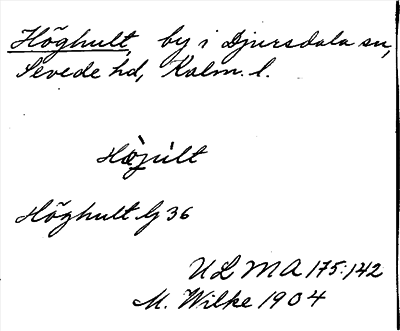 Höghult, by i Djursdala sn,
Sevede hd, Kalm. l.
Höghult G 36
ULMA 175:142
M. Wilke 1904